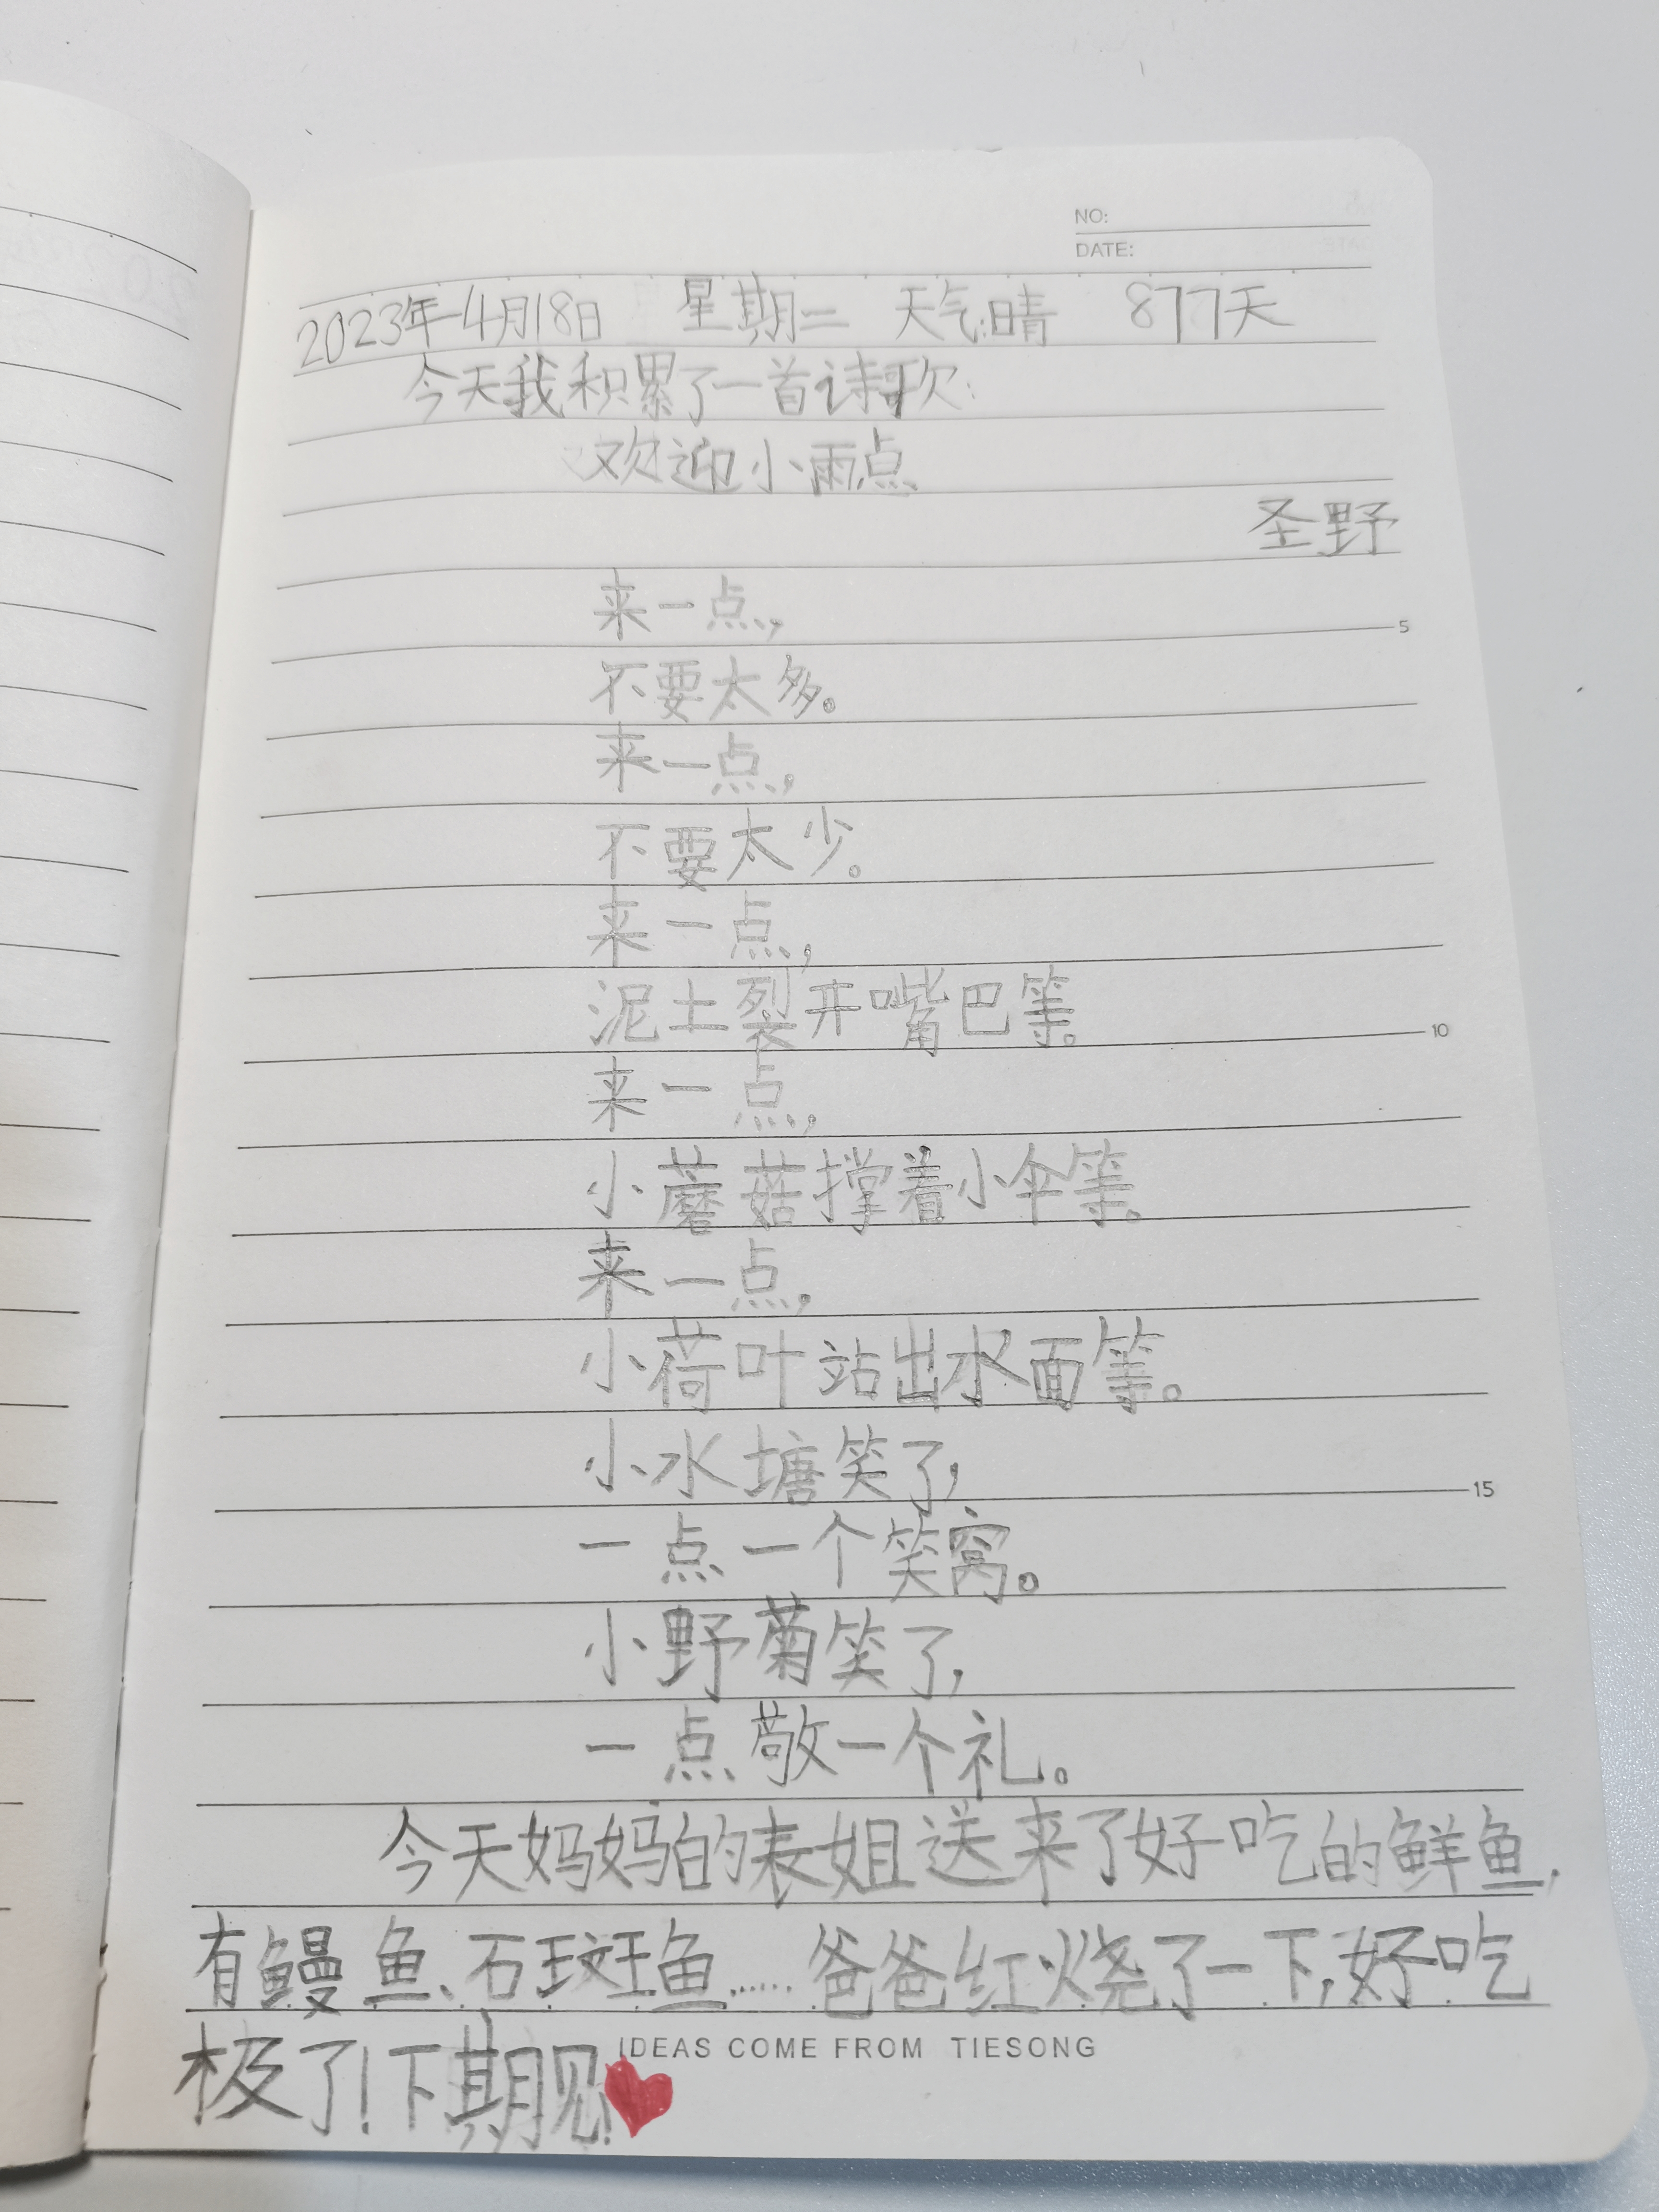 NO:
DATE:
2023年4月18日 星期二 天气:晴 877天
今天我积累了一首诗歌:
欢迎小雨点
圣野
来一点,
5
不要太多。
来一点,
不要太少。
来一点,
泥土裂开嘴巴等。
10
来一点,
小蘑菇撑着小伞等。
来一点,
小荷叶站出水面等。
小水塘笑了,
15
一点一个笑窝。
小野菊笑了,
一点敬一个礼。
今天妈妈的表姐送来了好吃的鲜鱼,
有鳗鱼、石斑鱼……爸爸红烧了一下,好吃
极了!下期见!
IDEAS COME FROM TIESONG